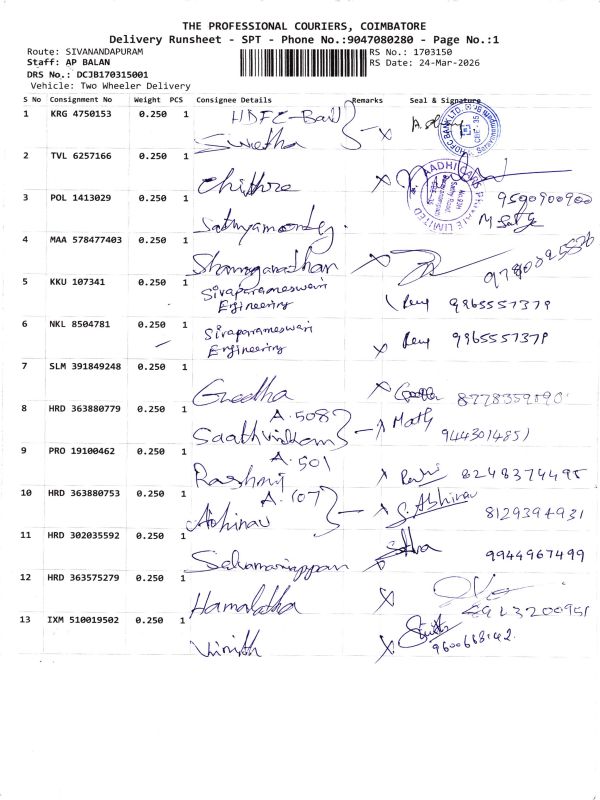 THE PROFESSIONAL COURIERS, COIMBATORE
Delivery Runsheet - SPT - Phone No.:9047080280 - Page No.:1
Route: SIVANANDAPURAM
Staff: AP BALAN
DRS No.: DCJB170315001
Vehicle: Two Wheeler Delivery
RS No.: 1703150
RS Date: 24-Mar-2026
S No Consignment No Weight PCS Consignee Details Remarks Seal & Signature
1 KRG 4750153 0.250 1 HDFC-Bank
Swetha
HDFC BANK LTD.
2 TVL 6257166 0.250 1
Chithra
3 POL 1413029 0.250 1 9500900900
Sathyamoorthy.
4 MAA 578477403 0.250 1
Shanmganadhan
5 KKU 107341 0.250 1 Sivaparameswari
Engineering 9965557379
6 NKL 8504781 0.250 1 Sivaparameswari
Engineering 9965557379
7 SLM 391849248 0.250 1
Geedha
8 HRD 363880779 0.250 1 A.508
9443014851
9 PRO 19100462 0.250 1 A.501
8248374495
10 HRD 363880753 0.250 1 A.107
Abhinav S. Abhinav 8129394931
11 HRD 302035592 0.250 1
9944967499
12 HRD 363575279 0.250 1
Hamalatha
13 IXM 510019502 0.250 1
Vinith 9600668142.